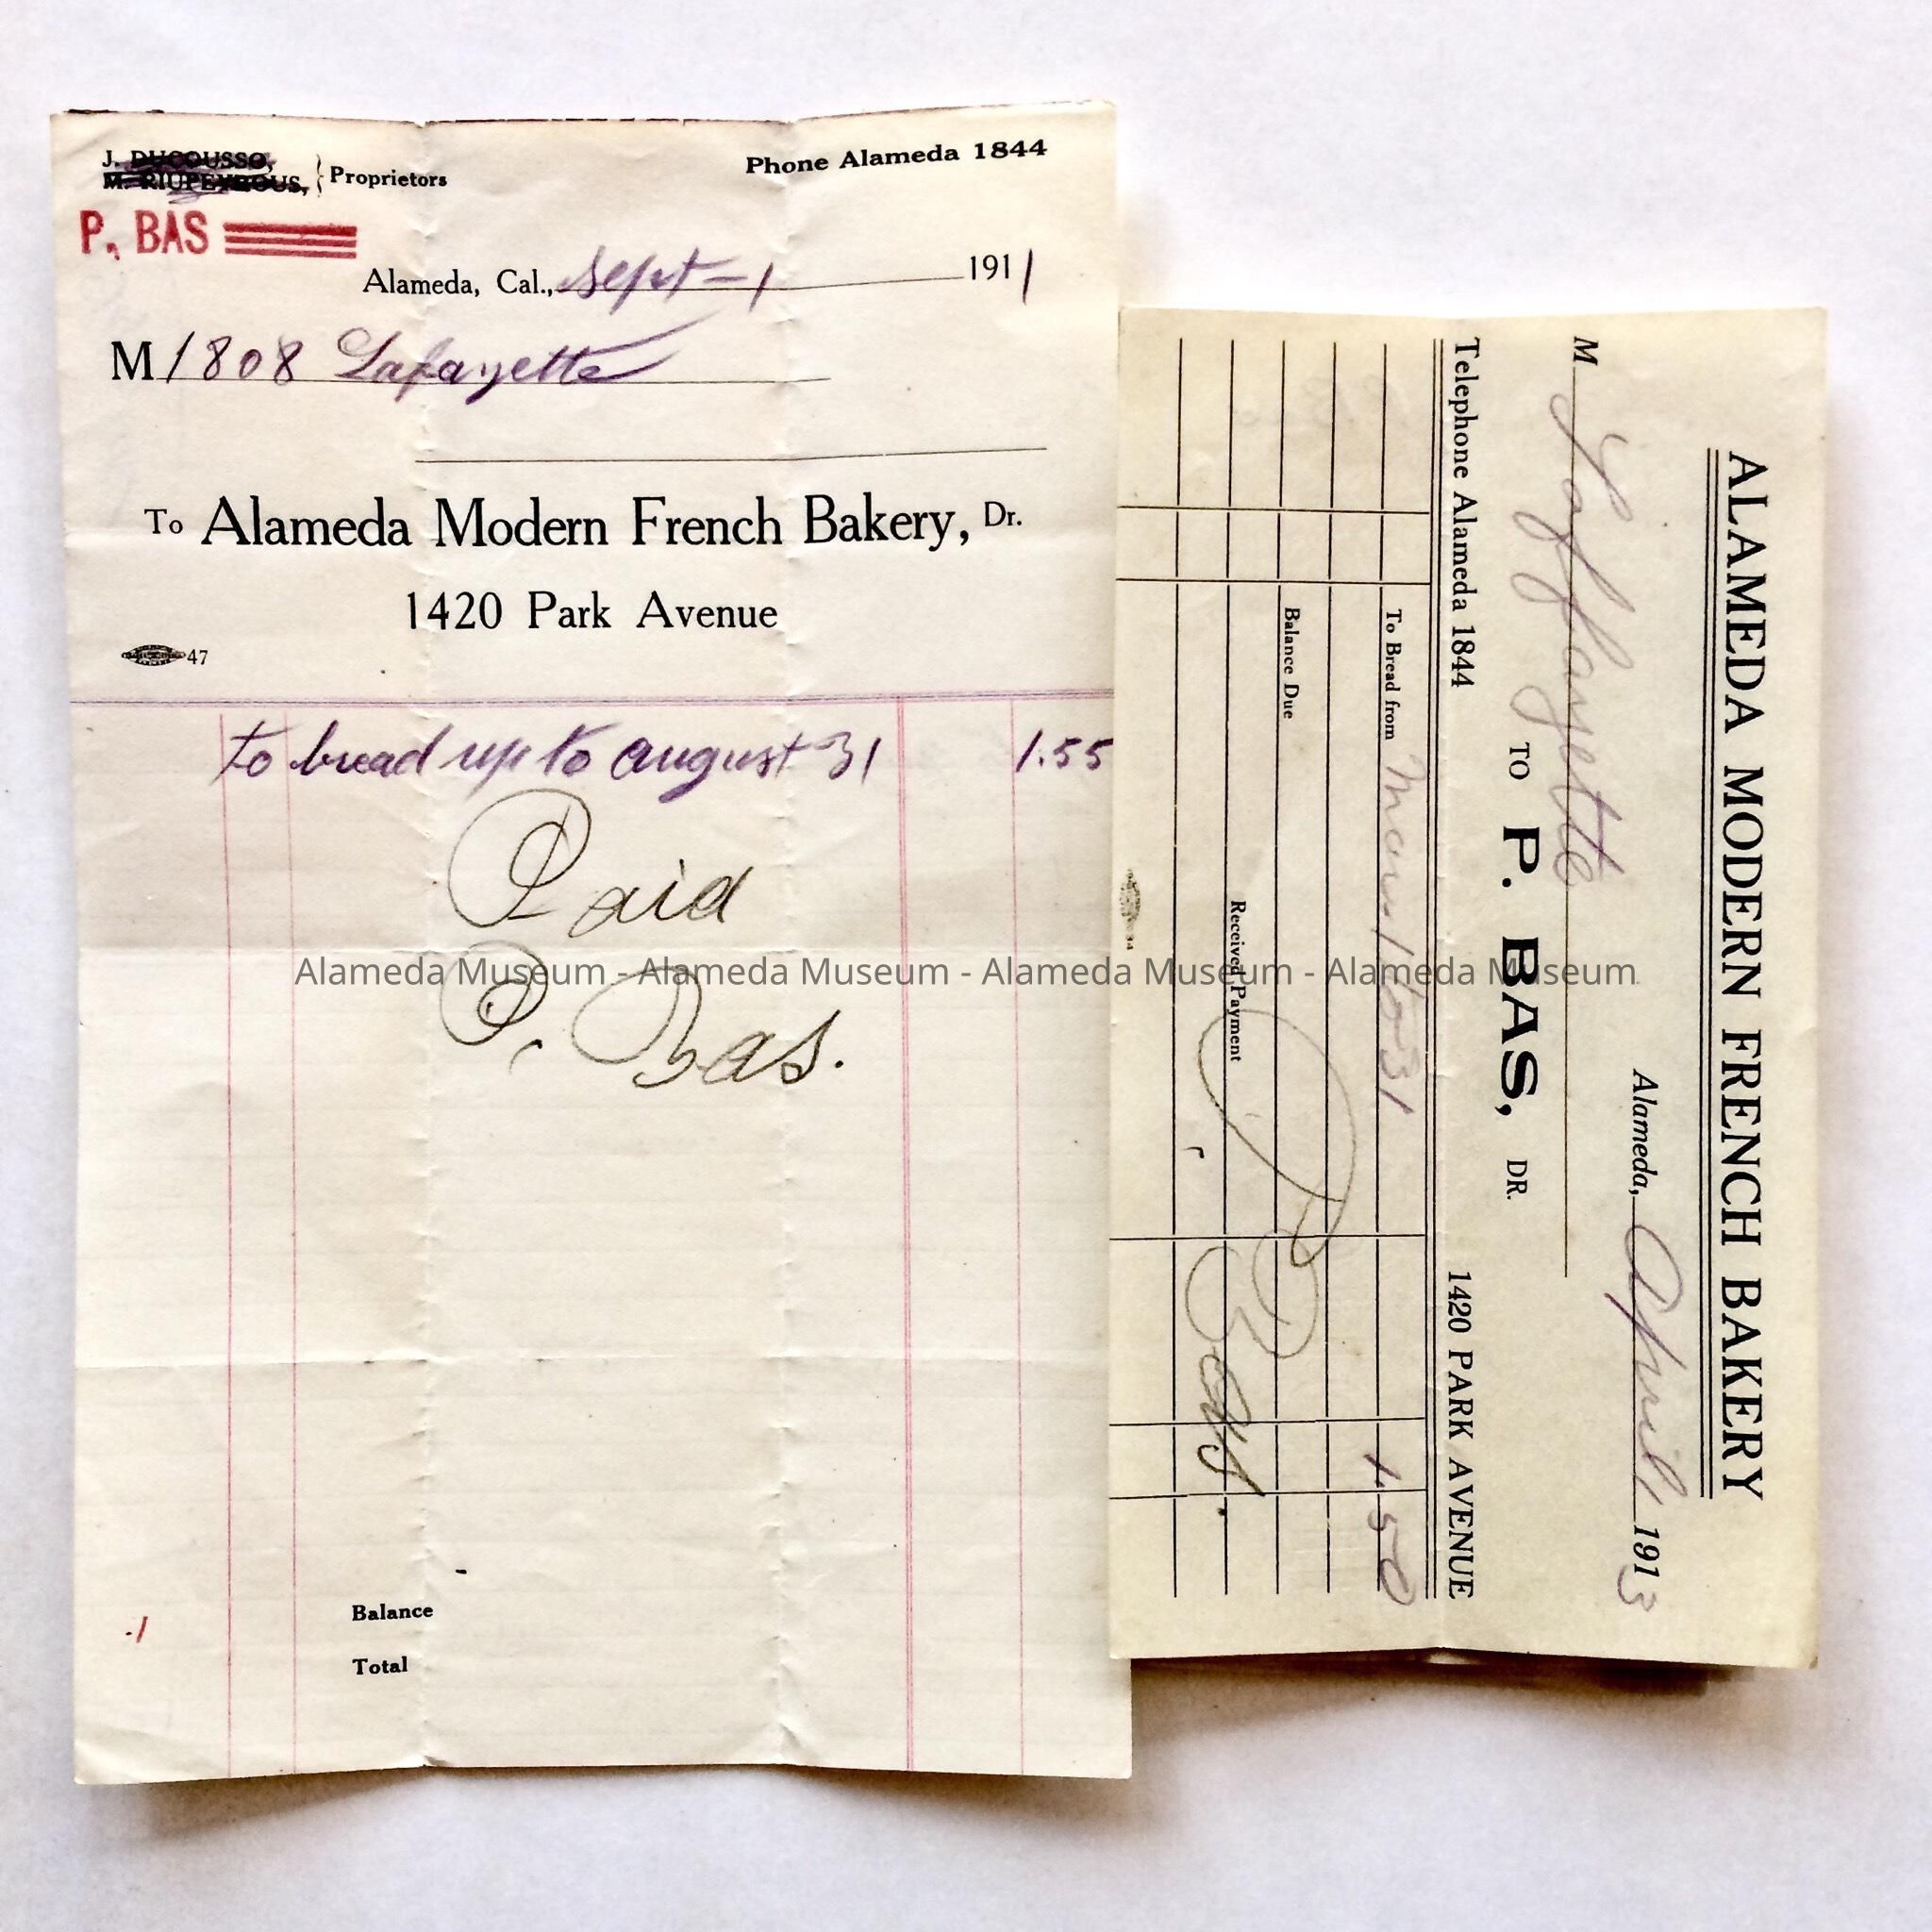 J. DUCOUSSO,
M. RIUPEYROUS, } Proprietors
Phone Alameda 1844
P. BAS
Alameda, Cal., Sept-1 1911
M 1808 Lafayette
To Alameda Modern French Bakery, Dr.
1420 Park Avenue
47
to bread up to august 31 1.55
Paid
P. Bas.
Balance
Total
ALAMEDA MODERN FRENCH BAKERY
Alameda, April 1913
M Laffayette
TO P. BAS, DR.
Telephone Alameda 1844 1420 PARK AVENUE
To Bread from Mars 1 to 31 1.50
Balance Due
Received Payment
P. Bas.
Alameda Museum - Alameda Museum - Alameda Museum - Alameda Museum